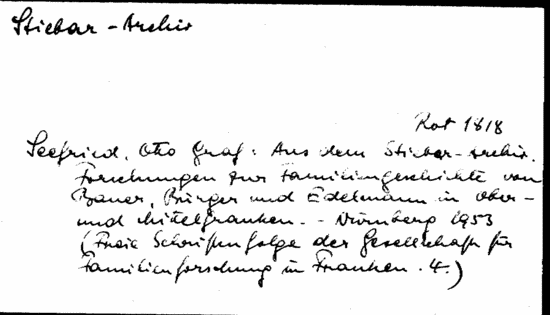 Stiebar-Archiv
Rot 1818
Seefried, Otto Graf: Aus dem Stiebar-Archiv.
Forschungen zur Familiengeschichte von
Bauer, Bürger und Edelmann in Ober-
und Mittelfranken. - Nürnberg 1953
(Freie Schriftenfolge der Gesellschaft für
Familienforschung in Franken. 4.)